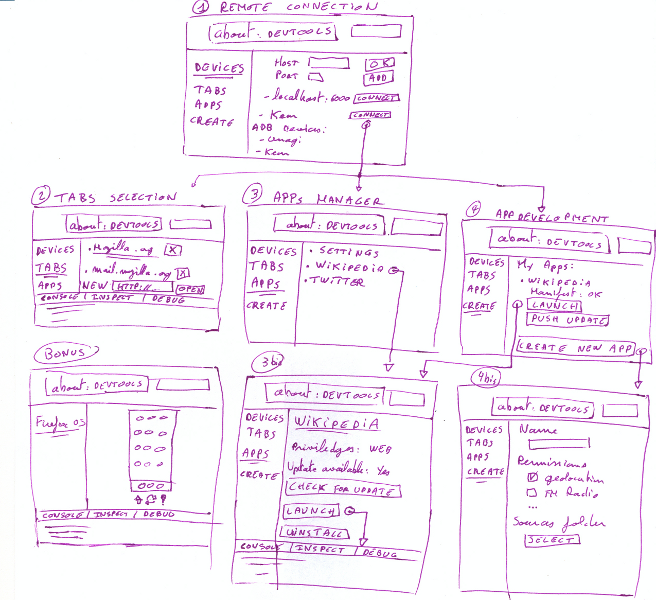 ① REMOTE CONNECTION
about: DEVTOOLS
DEVICES
TABS
APPS
CREATE
HOST
OK
PORT
ADD
- localhost: 6000 CONNECT
- Kem CONNECT
ADB Devices:
- Unagi
- Kem
② TABS SELECTION
about: DEVTOOLS
DEVICES
TABS
APPS
• Mozilla.org X
• mail.mozilla.org X
NEW HTTP://... OPEN
CONSOLE | INSPECT | DEBUG
③ APPS MANAGER
about: DEVTOOLS
DEVICES
TABS
APPS
CREATE
• SETTINGS
• WIKIPEDIA
• TWITTER
④ APP DEVELOPMENT
about: DEVTOOLS
DEVICES
TABS
APPS
CREATE
My Apps:
• WIKIPEDIA
Manifest: OK
LAUNCH
PUSH UPDATE
CREATE NEW APP
BONUS
about: DEVTOOLS
Firefox OS
CONSOLE | INSPECT | DEBUG
3bis
about: DEVTOOLS
DEVICES
TABS
APPS
CREATE
WIKIPEDIA
Priviledges: WEB
Update available: Yes
CHECK FOR UPDATE
LAUNCH
UNINSTALL
CONSOLE | INSPECT | DEBUG
4bis
about: DEVTOOLS
DEVICES
TABS
APPS
CREATE
Name
Permissions
geolocation
FM Radio
...
Sources folder
SELECT